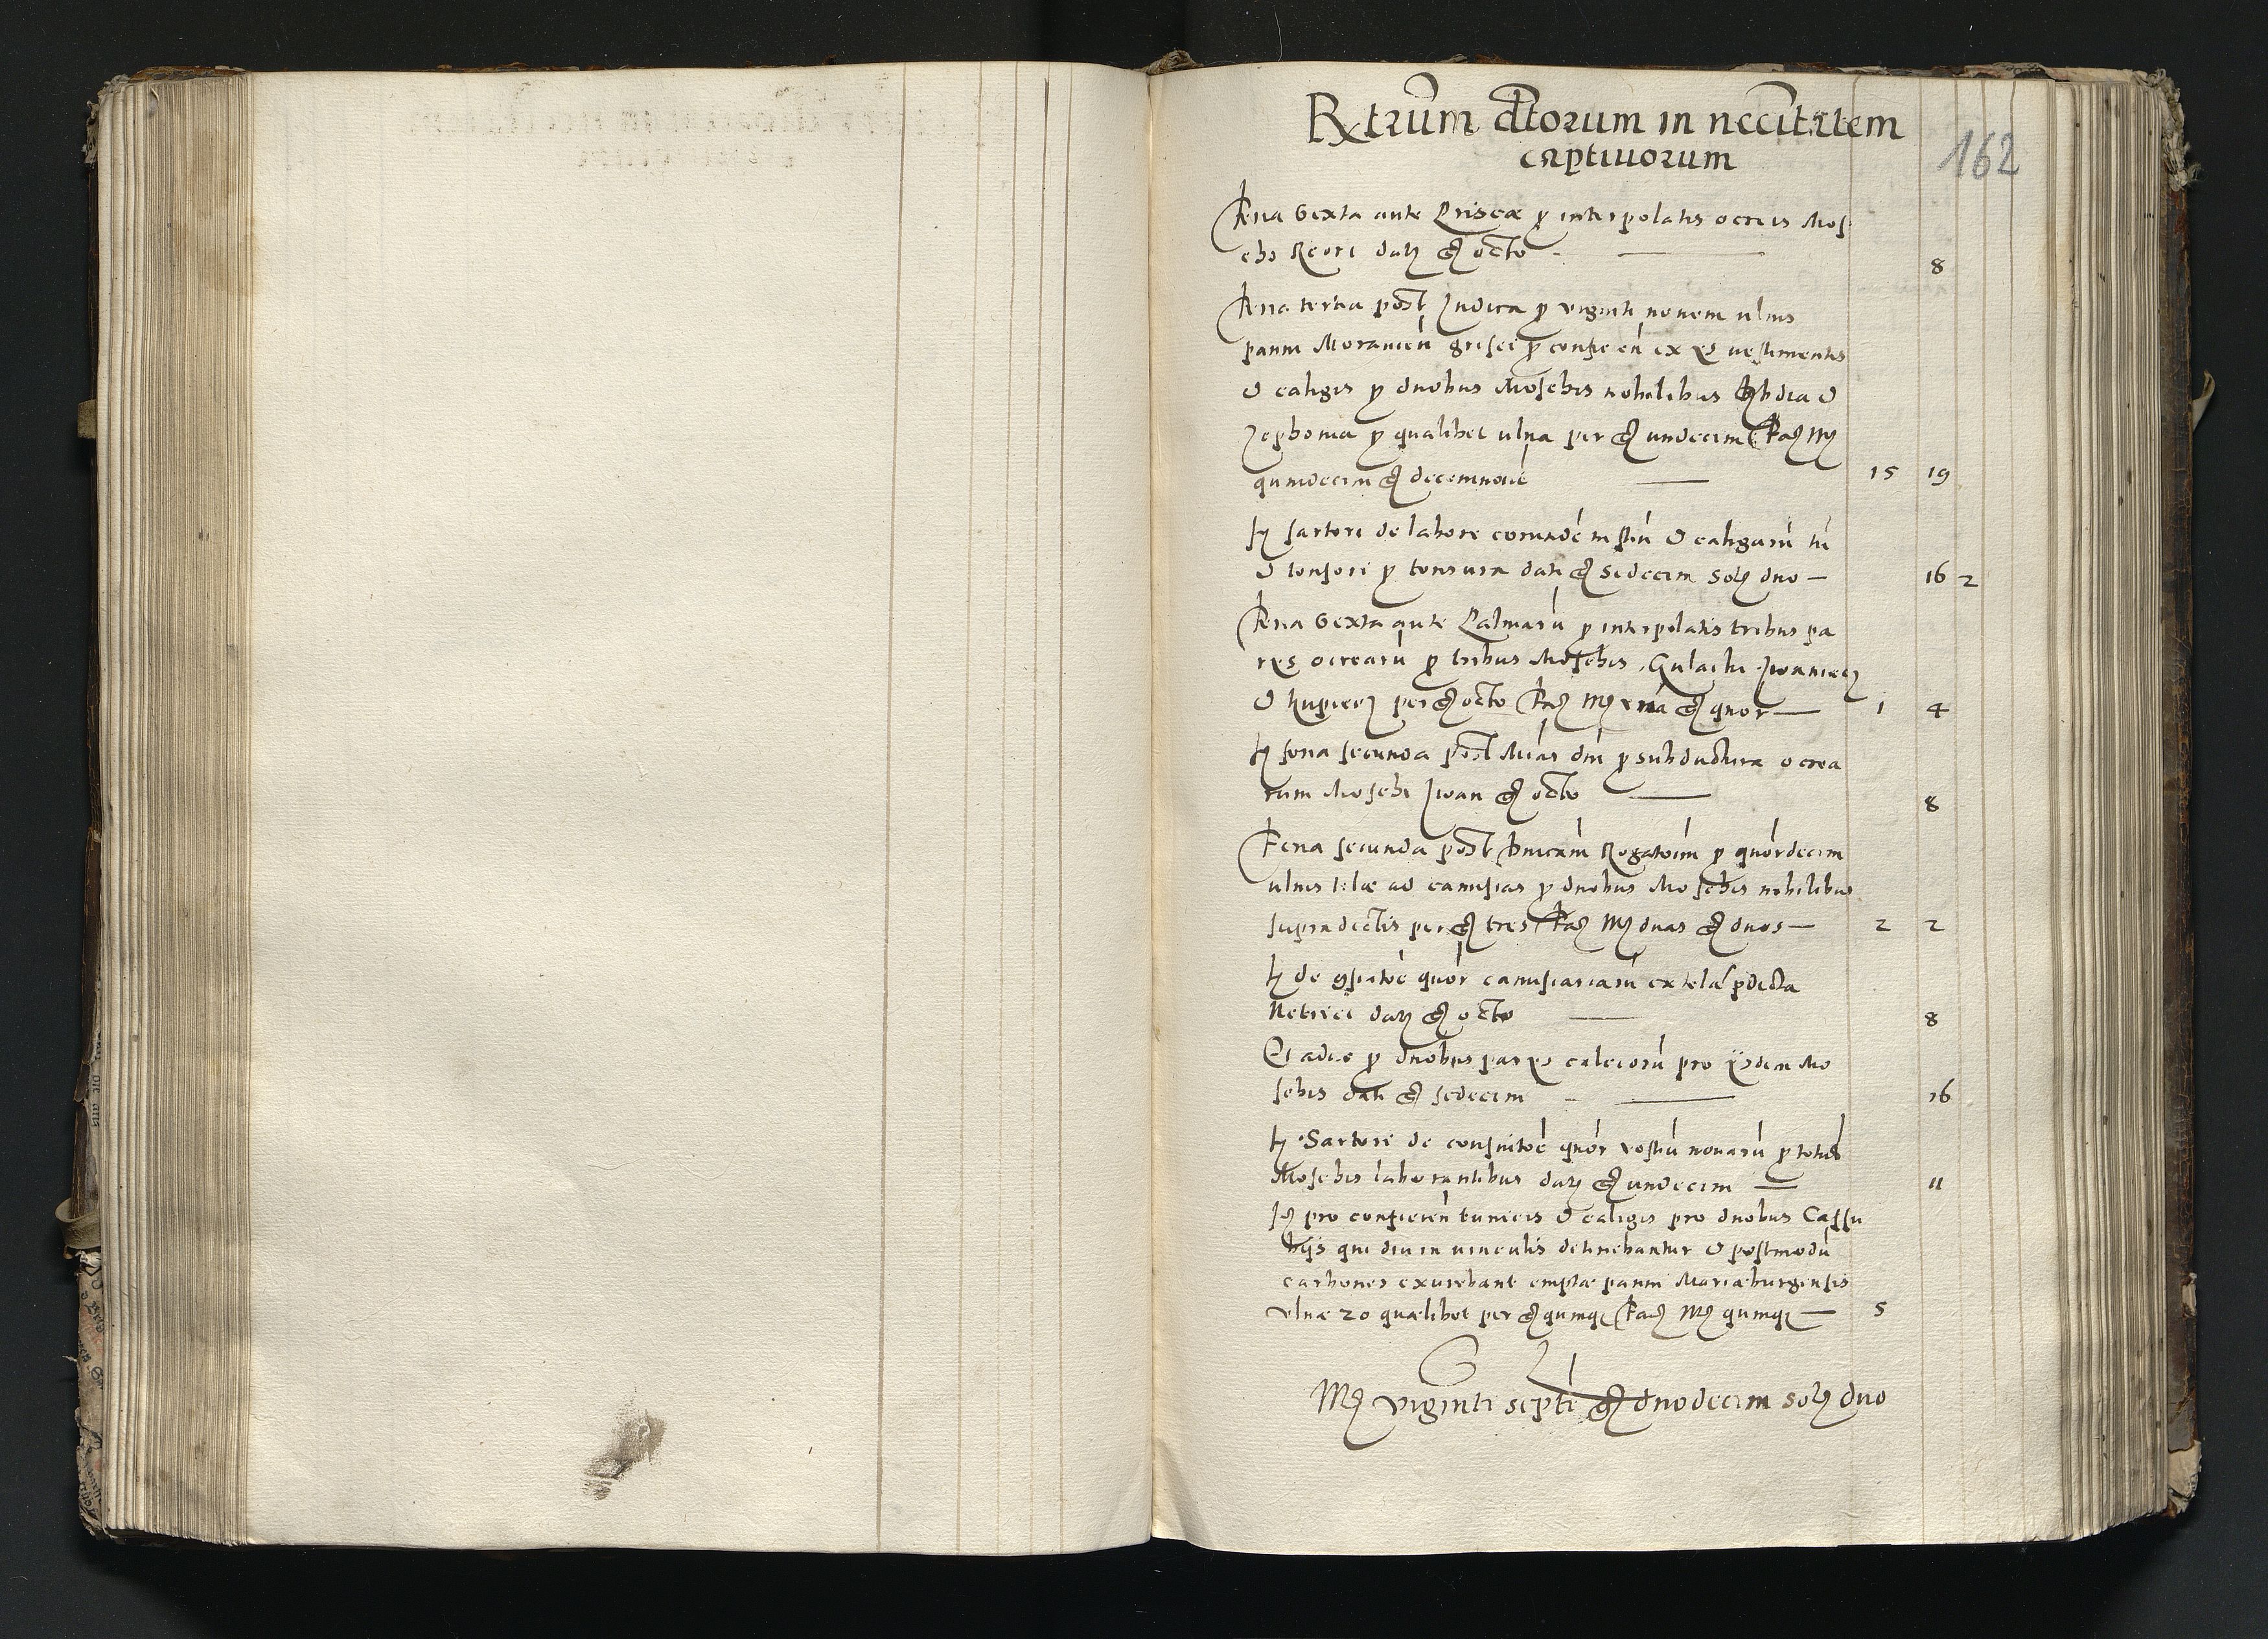 Rxtrum dtorum in nccitatem
captivorum
162
Feria Sexta ante Priscæ p interpolatis ocreis Mos
chi Reori datj gj octo — 8
Feria tertia post Judica p viginti novem ulnis
panni Moravien grisei p conficien ex eis vestimentis
et caligis p duobus Moschis nobilibus et
Zephonia p qualibet ulna per gj undecim fatj Mj
quindecim gj decemnove — 15 19
Itj sartori de labore eorunde vestiu et caligaru tu
et tonsori p tonsura dati gj sedecim solj duo — 16 2
Feria Sexta ante Palmaru p interpolatis tribus pa
res ocrearu p tribus Moschis, Gulaihi Iwaniecz
et Kupiecz per gj octo fatj Mj una gj quor — 1 4
Itj feria secunda post Mias dni p subductura ocrea
rum Moschi Iwan gj octo — 8
Feria secunda post Dnicam Rogatoim p quordecim
ulnis telæ ad camisias p duobus Moschis nobilibus
supradictis per gj tres fatj Mj duas gj duos — 2 2
Itj de gsutoe quor camisiariaru ex tela pdicta
Netrici datj gj octo — 8
Et adie p duobus pares calceoru pro ijsdem Mo
schis dati gj sedecim — 16
Itj Sartori de consuitoe quor vestiu novaru p totide
Moschis laborantibus datj gj undecim — 11
Itj pro conficien tunicis et caligis pro duobus Cassu
bijs qui diu in vinculis detinebantur et postmodu
carbones exurebant emptæ panni Mariæburgensis
ulnæ 20 quælibet per gj quinqj fatj Mj quinqj — 5
Mj viginti septe gj duodecim solj duo